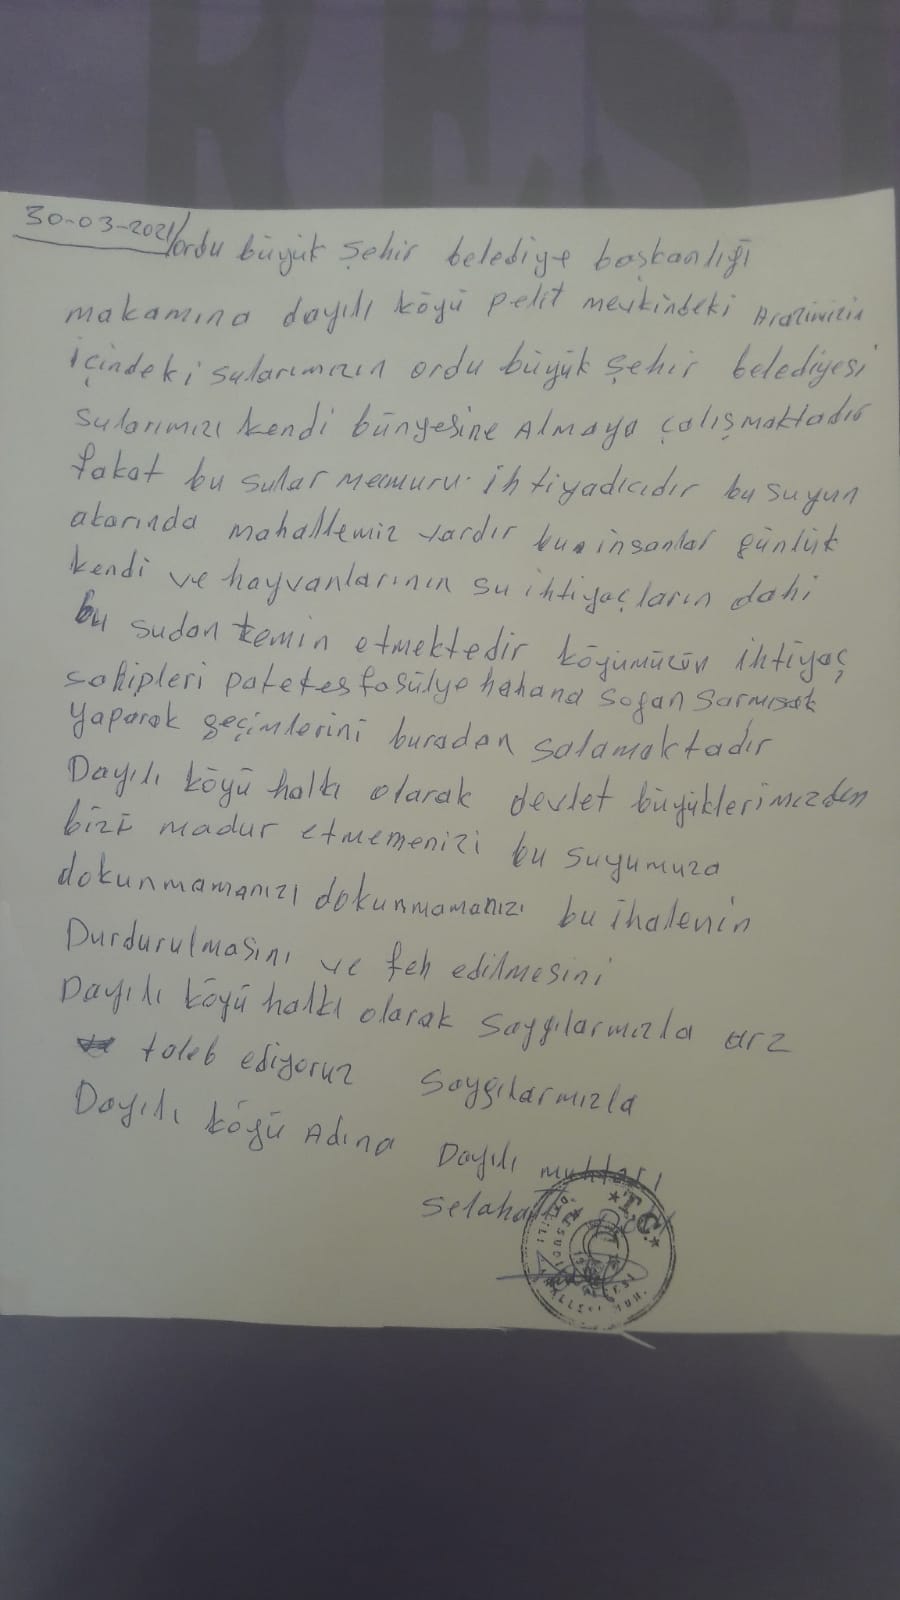 REST
30-03-2021/ordu büyük şehir belediye başkanlığı
makamına dayılı köyü pelit mevkindeki Arazimizin
içindeki sularımızın ordu büyük şehir belediyesi
Sularımızı kendi bünyesine Almaya çalışmaktadır
fakat bu sular ihtiyadıcıdır bu suyun
akarında mahallemiz vardır insanlar günlük
kendi ve hayvanlarının su ihtiyaçların dahi
bu sudan temin etmektedir köyümüzün ihtiyaç
sahipleri patetes fosülye hahana soğan sarmısak
yaparak geçimlerini buradan salamaktadır
Dayılı köyü halkı olarak devlet büyüklerimizden
bizi madur etmemenizi bu suyumuza
dokunmamanızı dokunmamanızı bu ihalenin
Durdurulmasını ve feh edilmesini
Dayılı köyü halkı olarak Saygılarmızla arz
taleb ediyoruz Saygılarmızla
Dayılı köyü Adına Dayılı muhtarı
T.C.